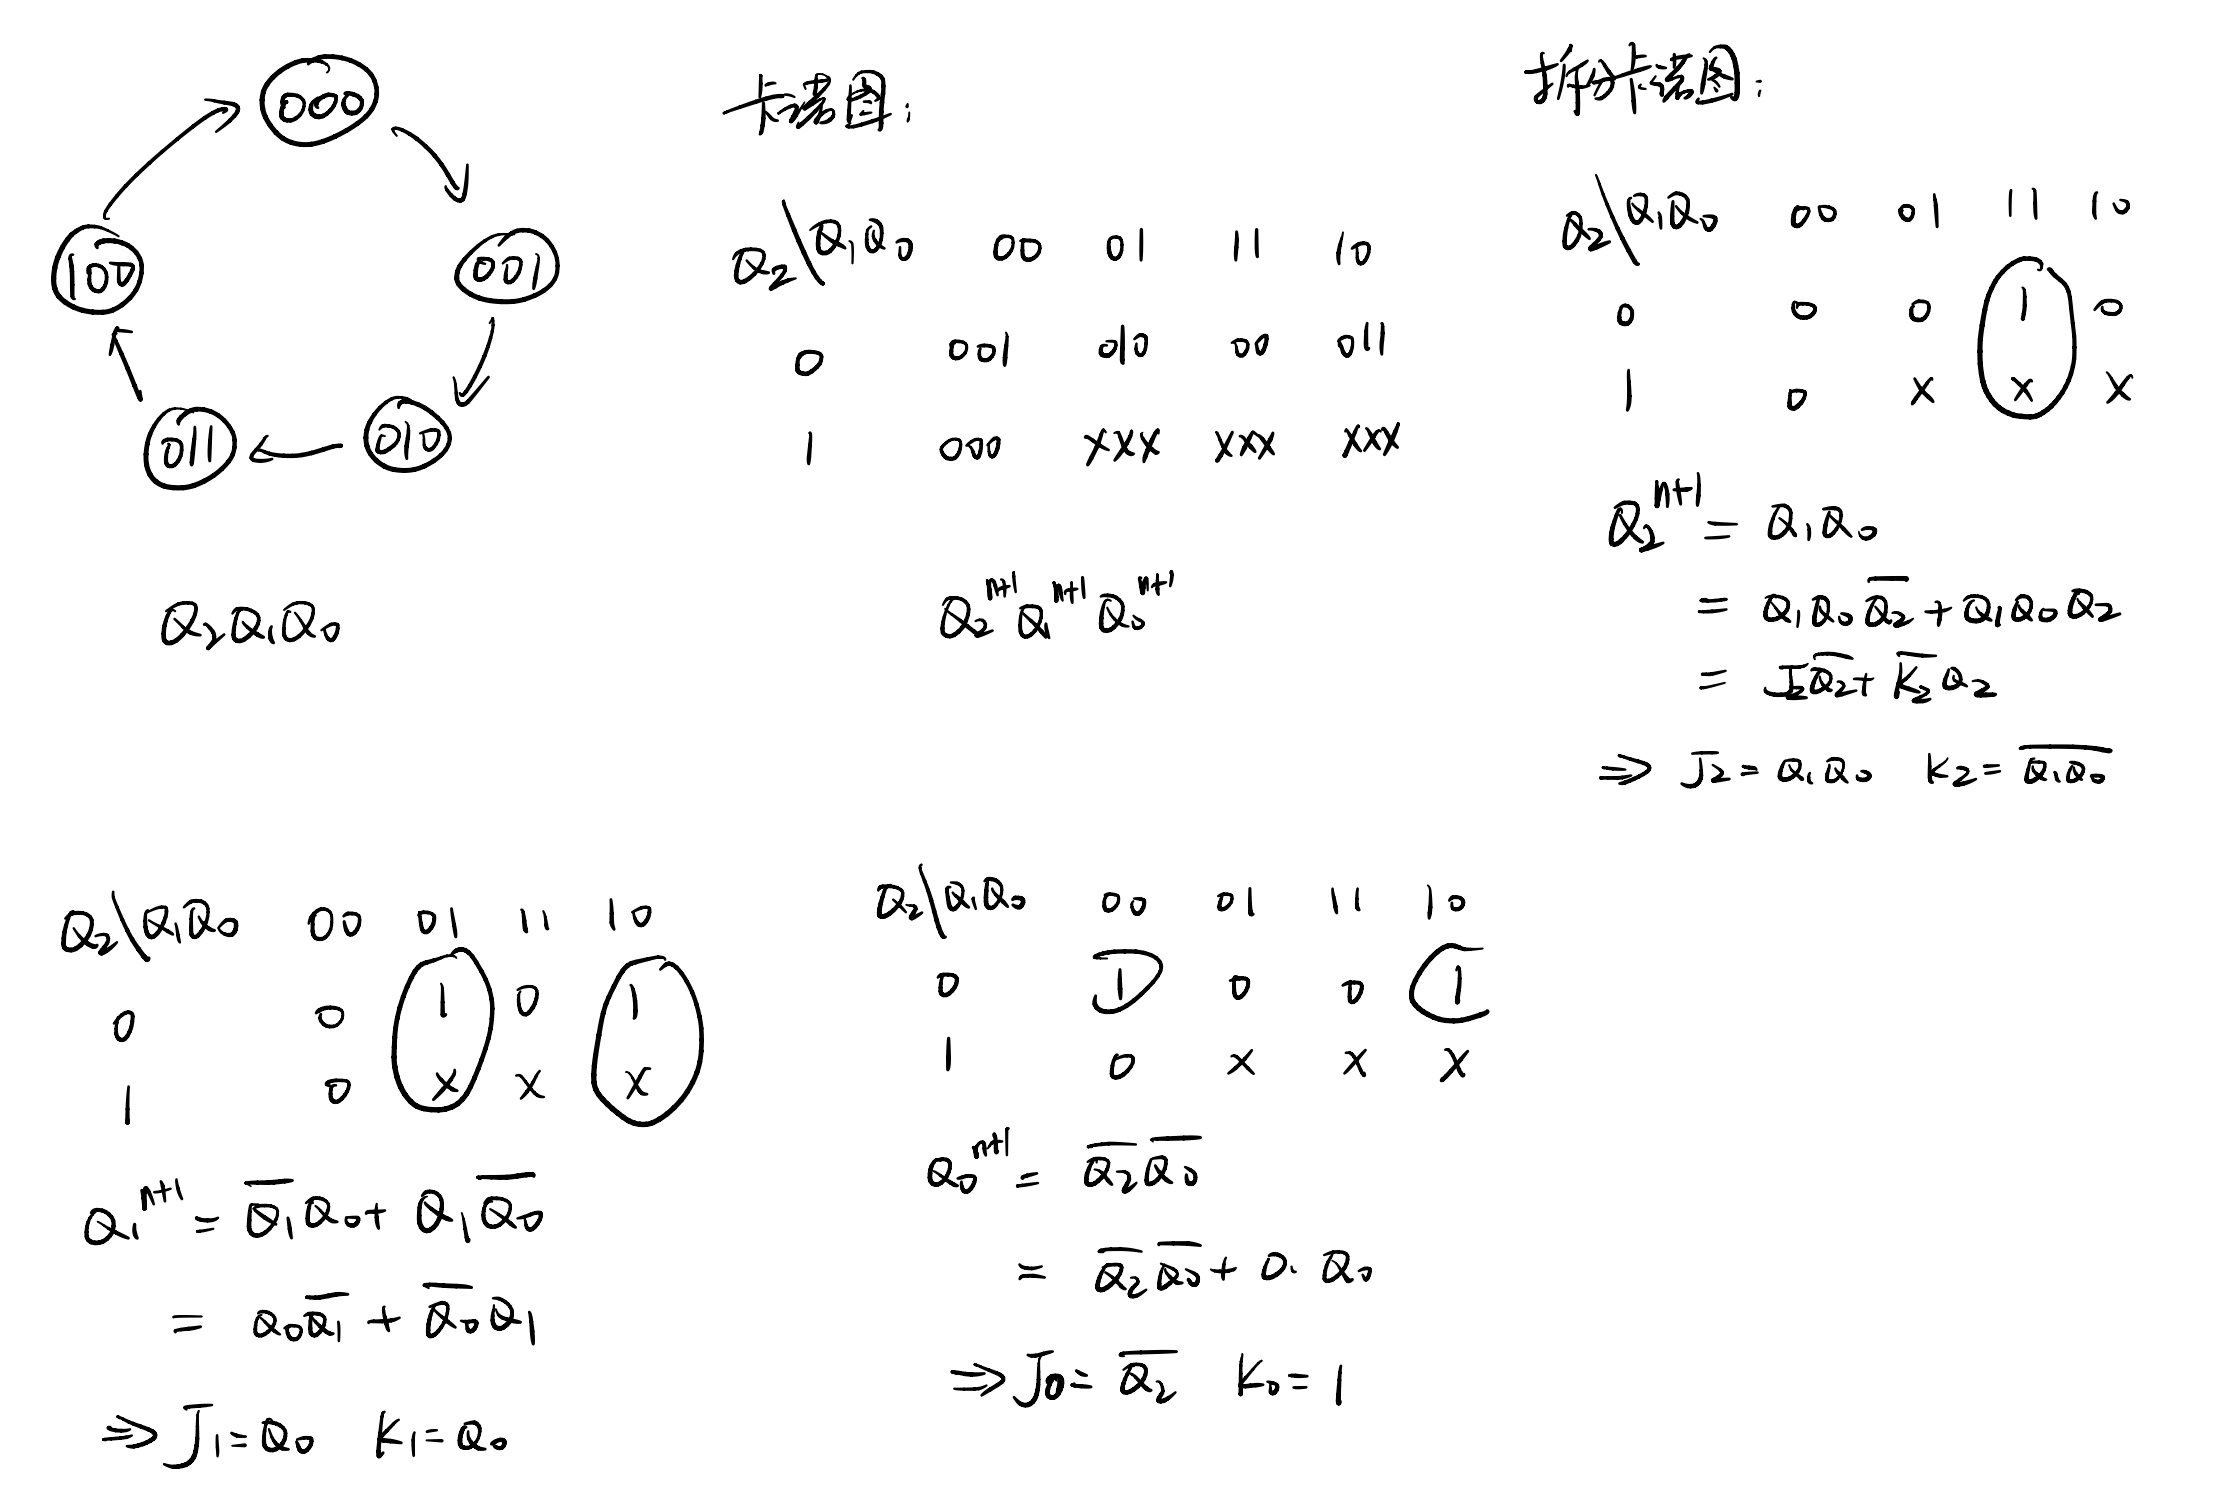 000
100
001
011
010
Q₂Q₁Q₀
卡诺图:
Q₂\Q₁Q₀ 00 01 11 10
0 001 010 00 011
1 000 XXX XXX XXX
Q₂ⁿ⁺¹Q₁ⁿ⁺¹Q₀ⁿ⁺¹
拆分卡诺图:
Q₂\Q₁Q₀ 00 01 11 10
0 0 0 1 0
1 0 X X X
Q₂ⁿ⁺¹ = Q₁Q₀
= Q₁Q₀Q̅₂ + Q₁Q₀Q₂
= J₂Q̅₂ + K̅₂Q₂
⇒ J₂ = Q₁Q₀ K₂ = \overline{Q₁Q₀}
Q₂\Q₁Q₀ 00 01 11 10
0 0 1 0 1
1 0 X X X
Q₁ⁿ⁺¹ = Q̅₁Q₀ + Q₁Q̅₀
= Q₀Q̅₁ + Q̅₀Q₁
⇒ J₁ = Q₀ K₁ = Q₀
Q₂\Q₁Q₀ 00 01 11 10
0 1 0 0 1
1 0 X X X
Q₀ⁿ⁺¹ = Q̅₂Q̅₀
= Q̅₂Q̅₀ + 0·Q₀
⇒ J₀ = Q̅₂ K₀ = 1